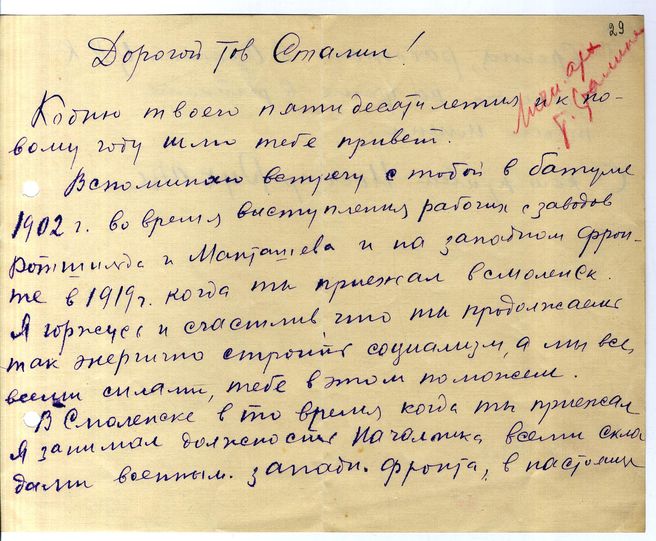 29
Дорогой тов Сталин!
Мой арх
Т. Сталина
Кодню твоего пятидесятилетия и к но-
вому году шлю тебе привет.
Вспоминаю встречу с тобой в батуме
1902 г. во время выступления рабочих с заводов
Ротшильда и Манташева и на западном фрон-
те в 1919 г. когда ты приежал в смоленск.
Я горжусь и счастлив что ты продолжаешь
так энергично строить социализм, а мы все,
всеми силами, тебе в этом поможем.
В Смоленске в то время когда ты приежал
Я занимал должность Начальника всеми скла
дами военным. западн. фронта, в настояще